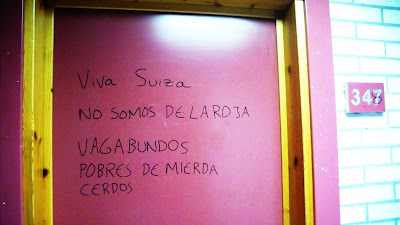 Viva Suiza
NO SOMOS DE LA ROJA
VAGABUNDOS
POBRES DE MIERDA
CERDOS
347